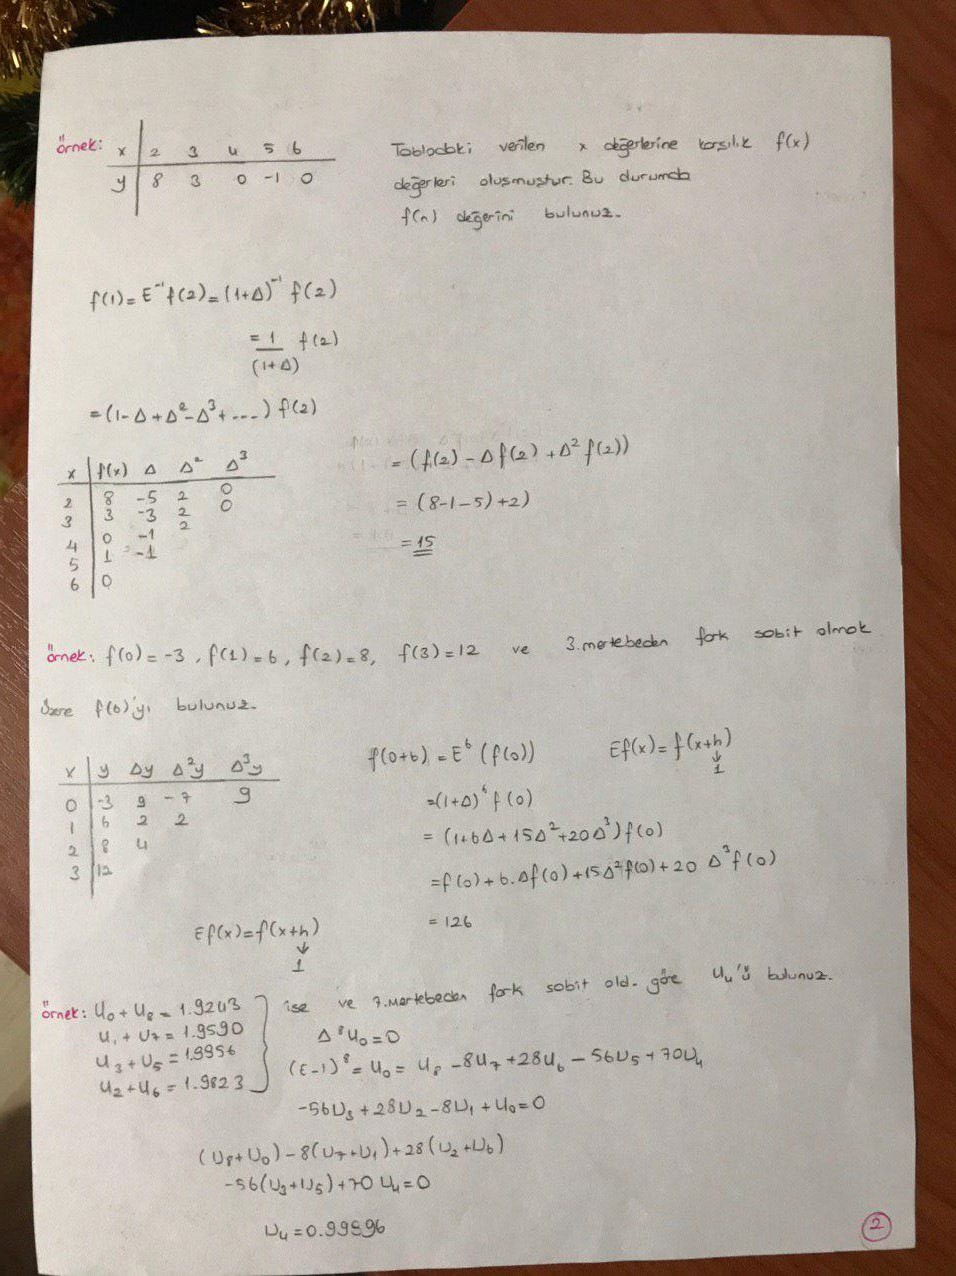 örnek: x | 2 3 4 5 6
y | 8 3 0 -1 0
Tablodaki verilen x değerlerine karşılık f(x)
değerleri oluşmuştur. Bu durumda
f(n) değerini bulunuz.
f(1) = E⁻¹f(2) = (1+Δ)⁻¹ f(2)
= 1/(1+Δ) f(2)
= (1-Δ+Δ²-Δ³+....) f(2)
x | f(x) Δ Δ² Δ³
2 | 8 -5 2 0
3 | 3 -3 2 0
4 | 0 -1 2
5 | 1 -1
6 | 0
= (f(2) - Δf(2) + Δ²f(2))
= (8-1-5)+2)
= 15
örnek: f(0) = -3, f(1) = 6, f(2) = 8, f(3) = 12 ve 3.mertebeden fark sabit olmak
üzere f(6)'yı bulunuz.
x | y Δy Δ²y Δ³y
0 | -3 9 -7 9
1 | 6 2 2
2 | 8 4
3 | 12
f(0+6) = E⁶(f(0))
Ef(x) = f(x+h)
↓
1
= (1+Δ)⁶ f(0)
= (1+6Δ+15Δ²+20Δ³)f(0)
= f(0)+6.Δf(0)+15Δ²f(0)+20 Δ³f(0)
= 126
Ef(x) = f(x+h)
↓
1
örnek: U₀ + U₈ = 1.9243
U₁ + U₇ = 1.9590
U₃ + U₅ = 1.9956
U₂ + U₆ = 1.9823
ise ve 7.mertebeden fark sabit old. göre U₄'ü bulunuz.
Δ⁸U₀ = 0
(E-1)⁸ = U₀ = U₈ - 8U₇ + 28U₆ - 56U₅ + 70U₄
-56U₃ + 28U₂ - 8U₁ + U₀ = 0
(U₈+U₀) - 8(U₇+U₁) + 28(U₂+U₆)
-56(U₃+U₅) + 70U₄ = 0
U₄ = 0.99996
2